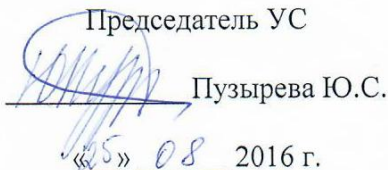 Председатель УС
Пузырева Ю.С.
«25» 08 2016 г.